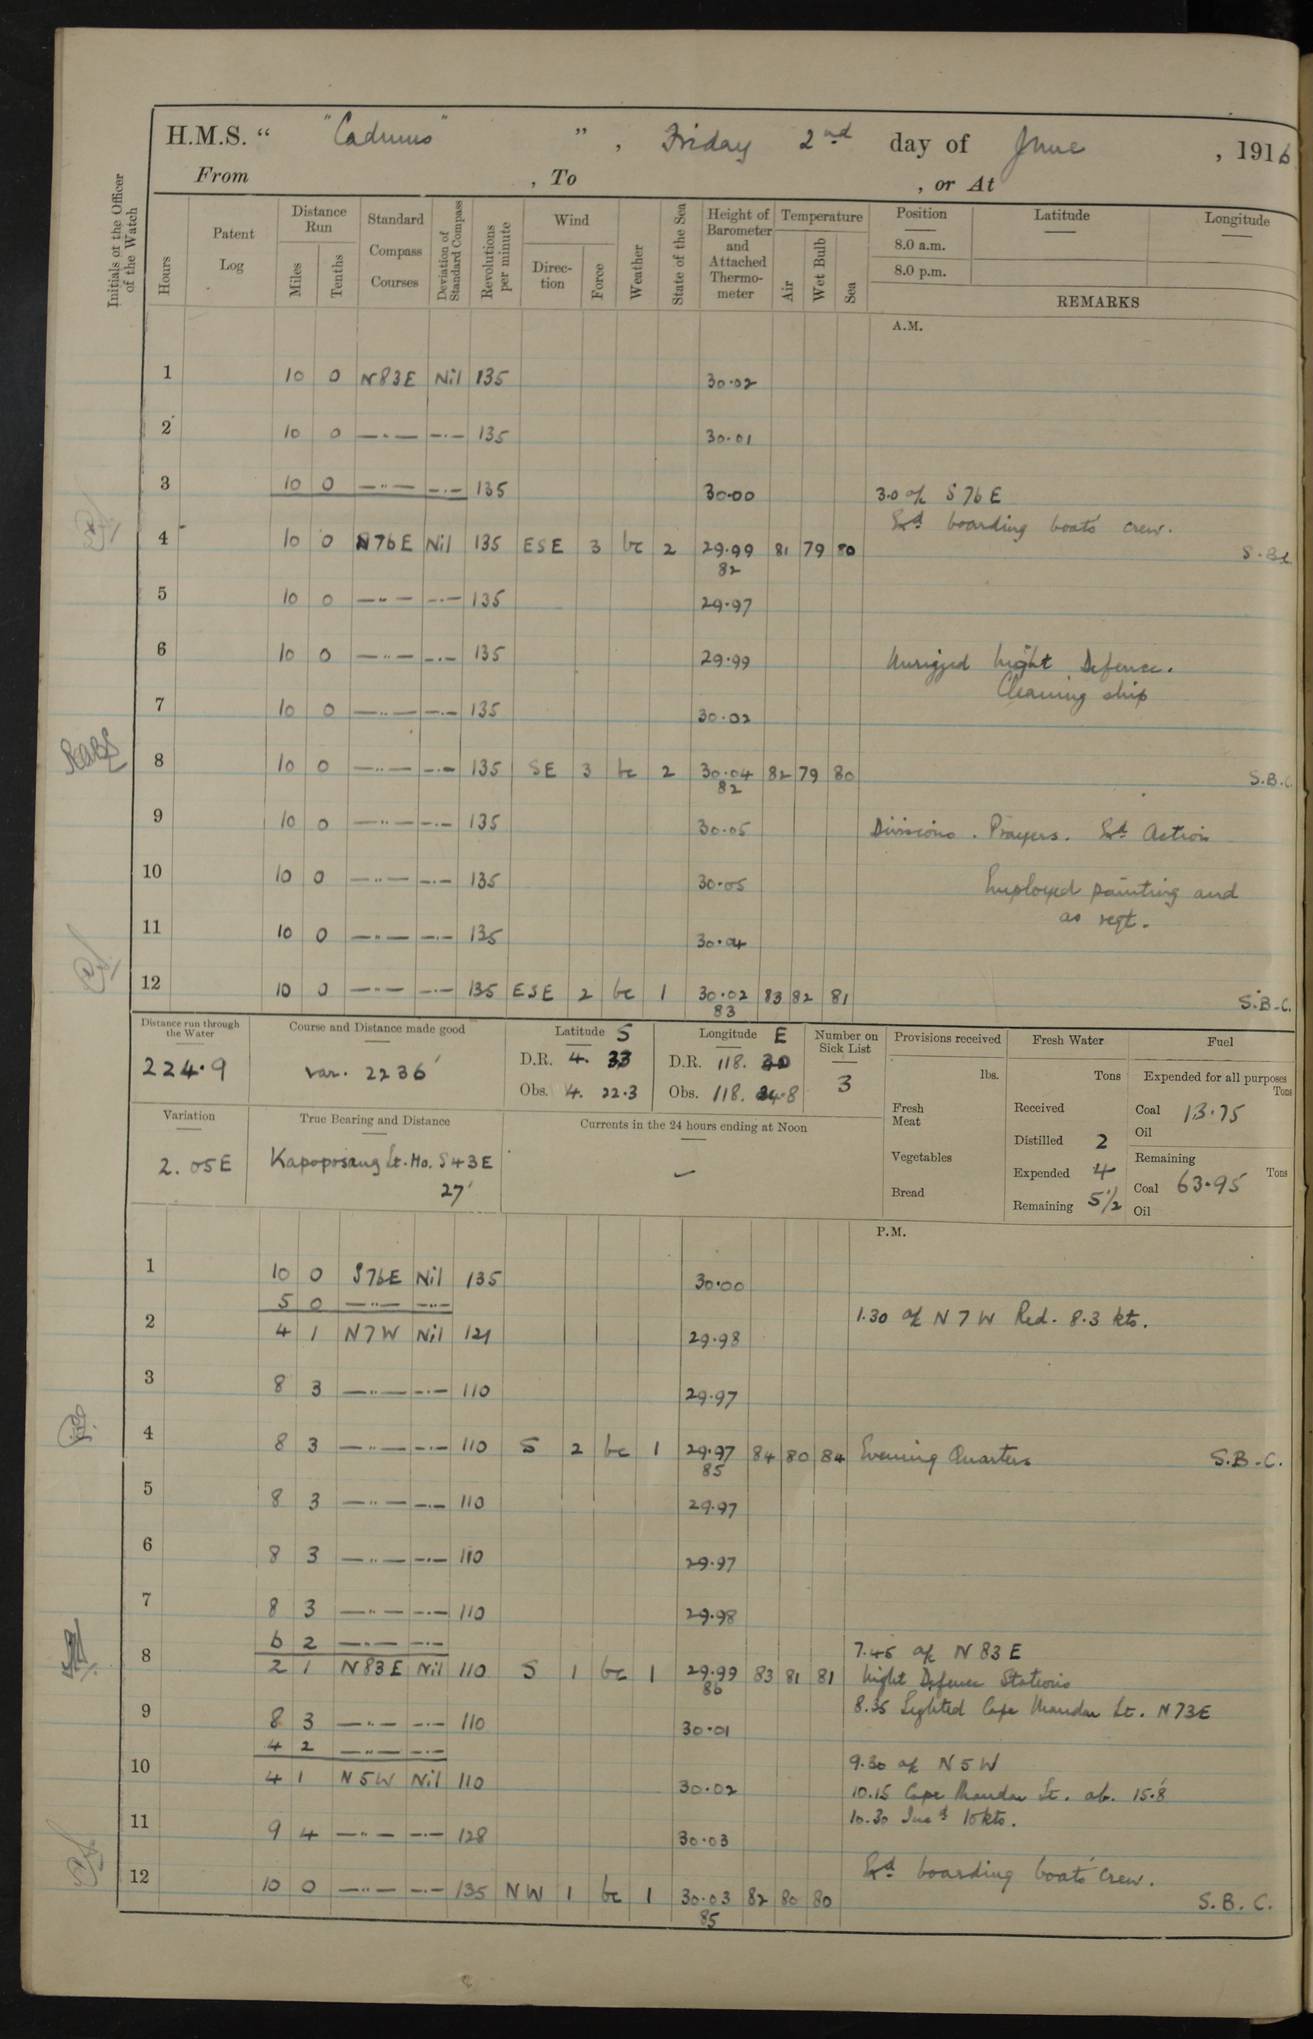 H.M.S. “ "Cadmus" ” , Friday 2nd day of June , 1916
From , To , or At
Initials of the Officer of the Watch
Hours Patent Log Distance Run Miles Tenths Standard Compass Courses Deviation of Standard Compass Revolutions per minute Wind Direction Force Weather State of the Sea Height of Barometer and Attached Thermometer Temperature Air Wet Bulb Sea Position Latitude Longitude
8.0 a.m.
8.0 p.m.
REMARKS
A.M.
1 10 0 N83E Nil 135 30.02
2 10 0 —··— —·— 135 30.01
3 10 0 —··— —·— 135 30.00 3.0 a/c S 76 E
Exd boarding boats crew.
4 10 0 S76E Nil 135 ESE 3 bc 2 29.99 81 79 80 S.B.C
82
5 10 0 —··— —·— 135 29.97
6 10 0 —··— —·— 135 29.99 Unrigged Night Defence.
Cleaning ship
7 10 0 —··— —·— 135 30.02
8 10 0 —··— —·— 135 SE 3 bc 2 30.04 82 79 80 S.B.C.
82
9 10 0 —··— —·— 135 30.05 Divisions. Prayers. Exd Action
10 10 0 —··— —·— 135 30.05 Employed painting and
as reqt.
11 10 0 —··— —·— 135 30.04
12 10 0 —··— —·— 135 ESE 2 bc 1 30.02 83 82 81 S.B.C.
83
Distance run through the Water Course and Distance made good Latitude S Longitude E Number on Sick List Provisions received Fresh Water Fuel
224.9 var. 223 6' D.R. 4. 33 D.R. 118. 30 3 lbs. Tons Expended for all purposes Tons
Obs. 4. 22.3 Obs. 118. 24.8 Fresh Meat Received Coal 13.75
Oil
Variation True Bearing and Distance Currents in the 24 hours ending at Noon Distilled 2 Remaining Tons
2.05E Kapoposang Lt. Ho. S43E — Vegetables Expended 4 Coal 63.95
27' Bread Remaining 5½ Oil
P.M.
1 10 0 S76E Nil 135 30.00
5 0 —··— —·—
2 4 1 N7W Nil 121 29.98 1.30 a/c N 7 W Red. 8.3 kts.
3 8 3 —··— —·— 110 29.97
4 8 3 —··— —·— 110 S 2 bc 1 29.97 84 80 84 Evening Quarters S.B.C.
85
5 8 3 —··— —·— 110 29.97
6 8 3 —··— —·— 110 29.97
7 8 3 —··— —·— 110 29.98
6 2 —··— —·— 7.45 a/c N 83 E
8 2 1 N83E Nil 110 S 1 bc 1 29.99 83 81 81 Night Defence Stations
86
8.35 Sighted Cape Mandar Lt. N73E
9 8 3 —··— —·— 110 30.01
4 2 —··— —·— 9.30 a/c N 5 W
10 4 1 N5W Nil 110 30.02 10.15 Cape Mandar Lt. ab. 15.8'
10.30 Incd 10 kts.
11 9 4 —··— —·— 128 30.03
Exd boarding boats crew.
12 10 0 —··— —·— 135 NW 1 bc 1 30.03 82 80 80 S.B.C.
85